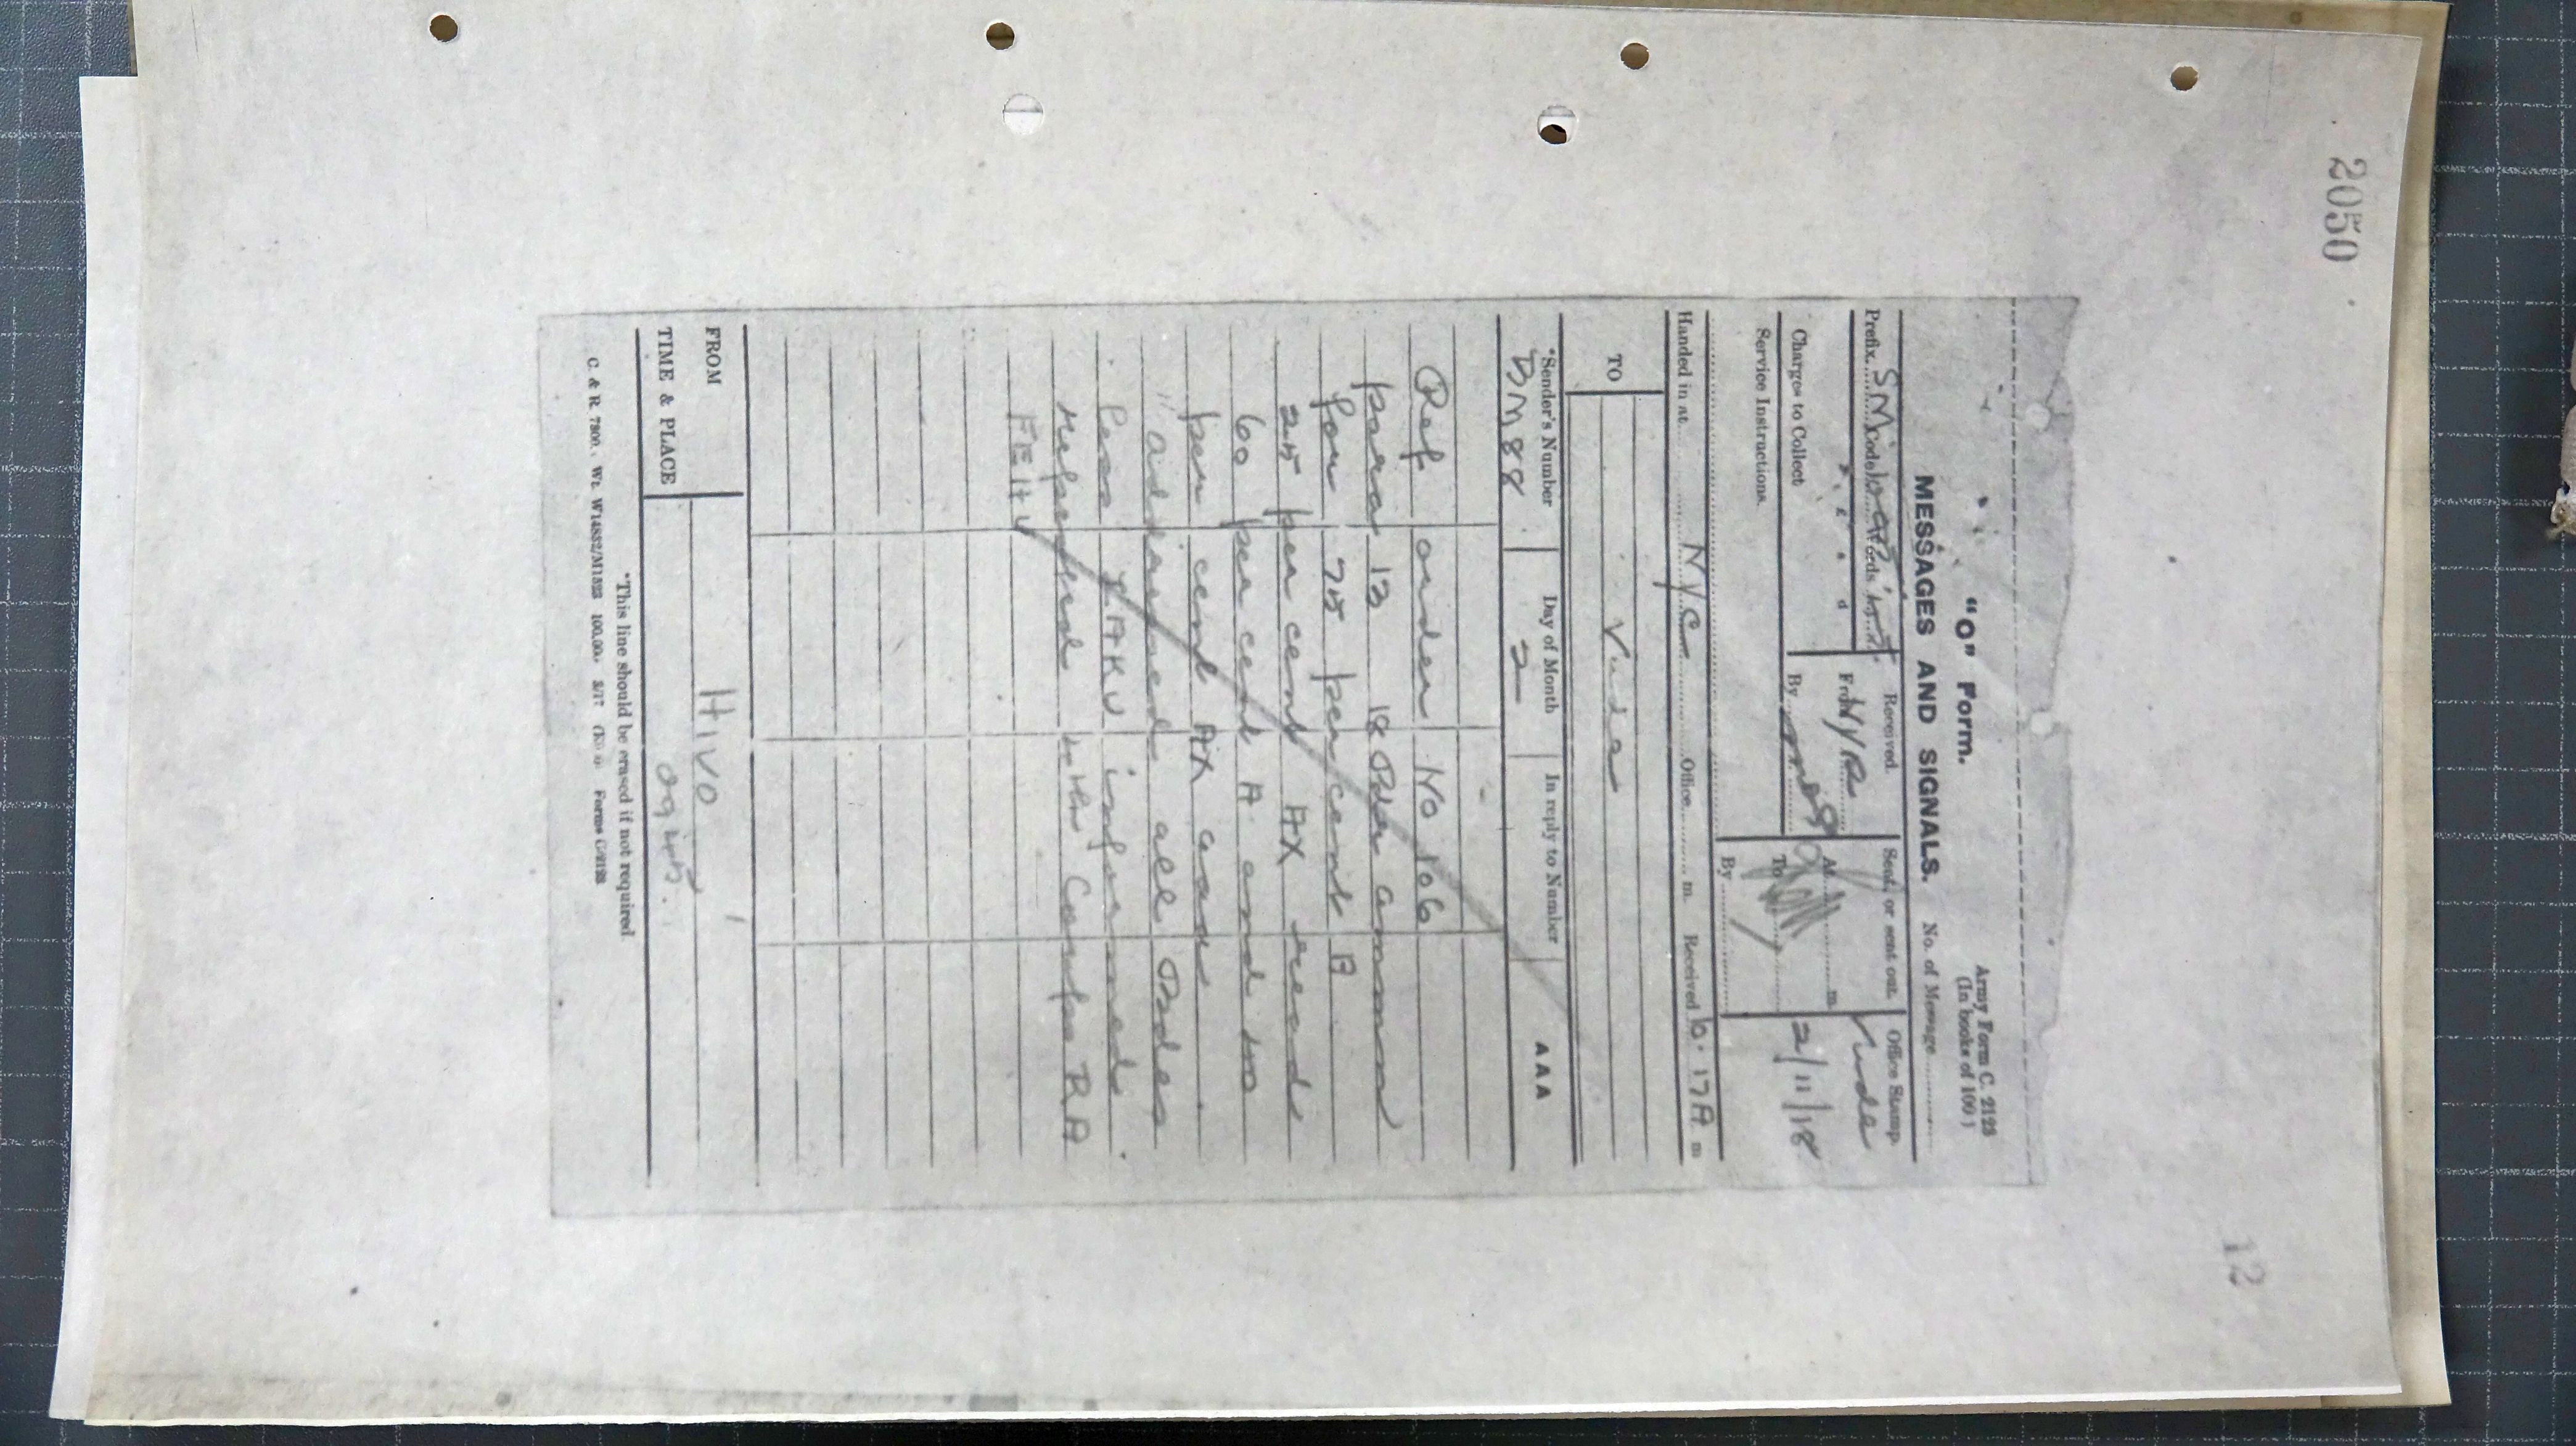 2050
12
"O" Form.
Army Form C. 2123
(In books of 100)
MESSAGES AND SIGNALS.
No. of Message
Prefix SM Code Words
Received.
Sent, or sent out.
Office Stamp.
From NYR
At m
Vude
Charges to Collect
By
To
2/11/18
Service Instructions.
By
Handed in at NYC Office m. Received 10.17A m
TO
Vude
*Sender's Number
Day of Month
In reply to Number
AAA
BM88
2
Ref order No 106
para 13 18 Pdr ammn
for 75 per cent A
25 per cent AX read
60 per cent A and 40
per cent AX aaa
addressed all Bdes
less YAKU informed
4th Corps RA
FEHU
FROM
HIVO
TIME & PLACE
0945
*This line should be erased if not required.
C. & R. 7800. Wt. W14832/M1523 100,000 5/17 Forms C/2123